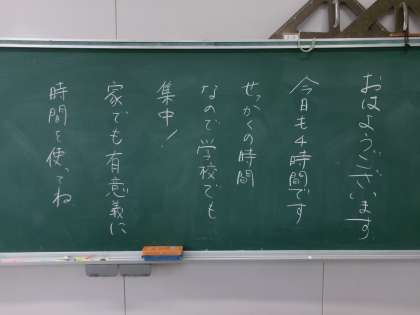 おはようございます
今日も4時間です
せっかくの時間
なので学校でも
集中!
家でも有意義に
時間を使ってね